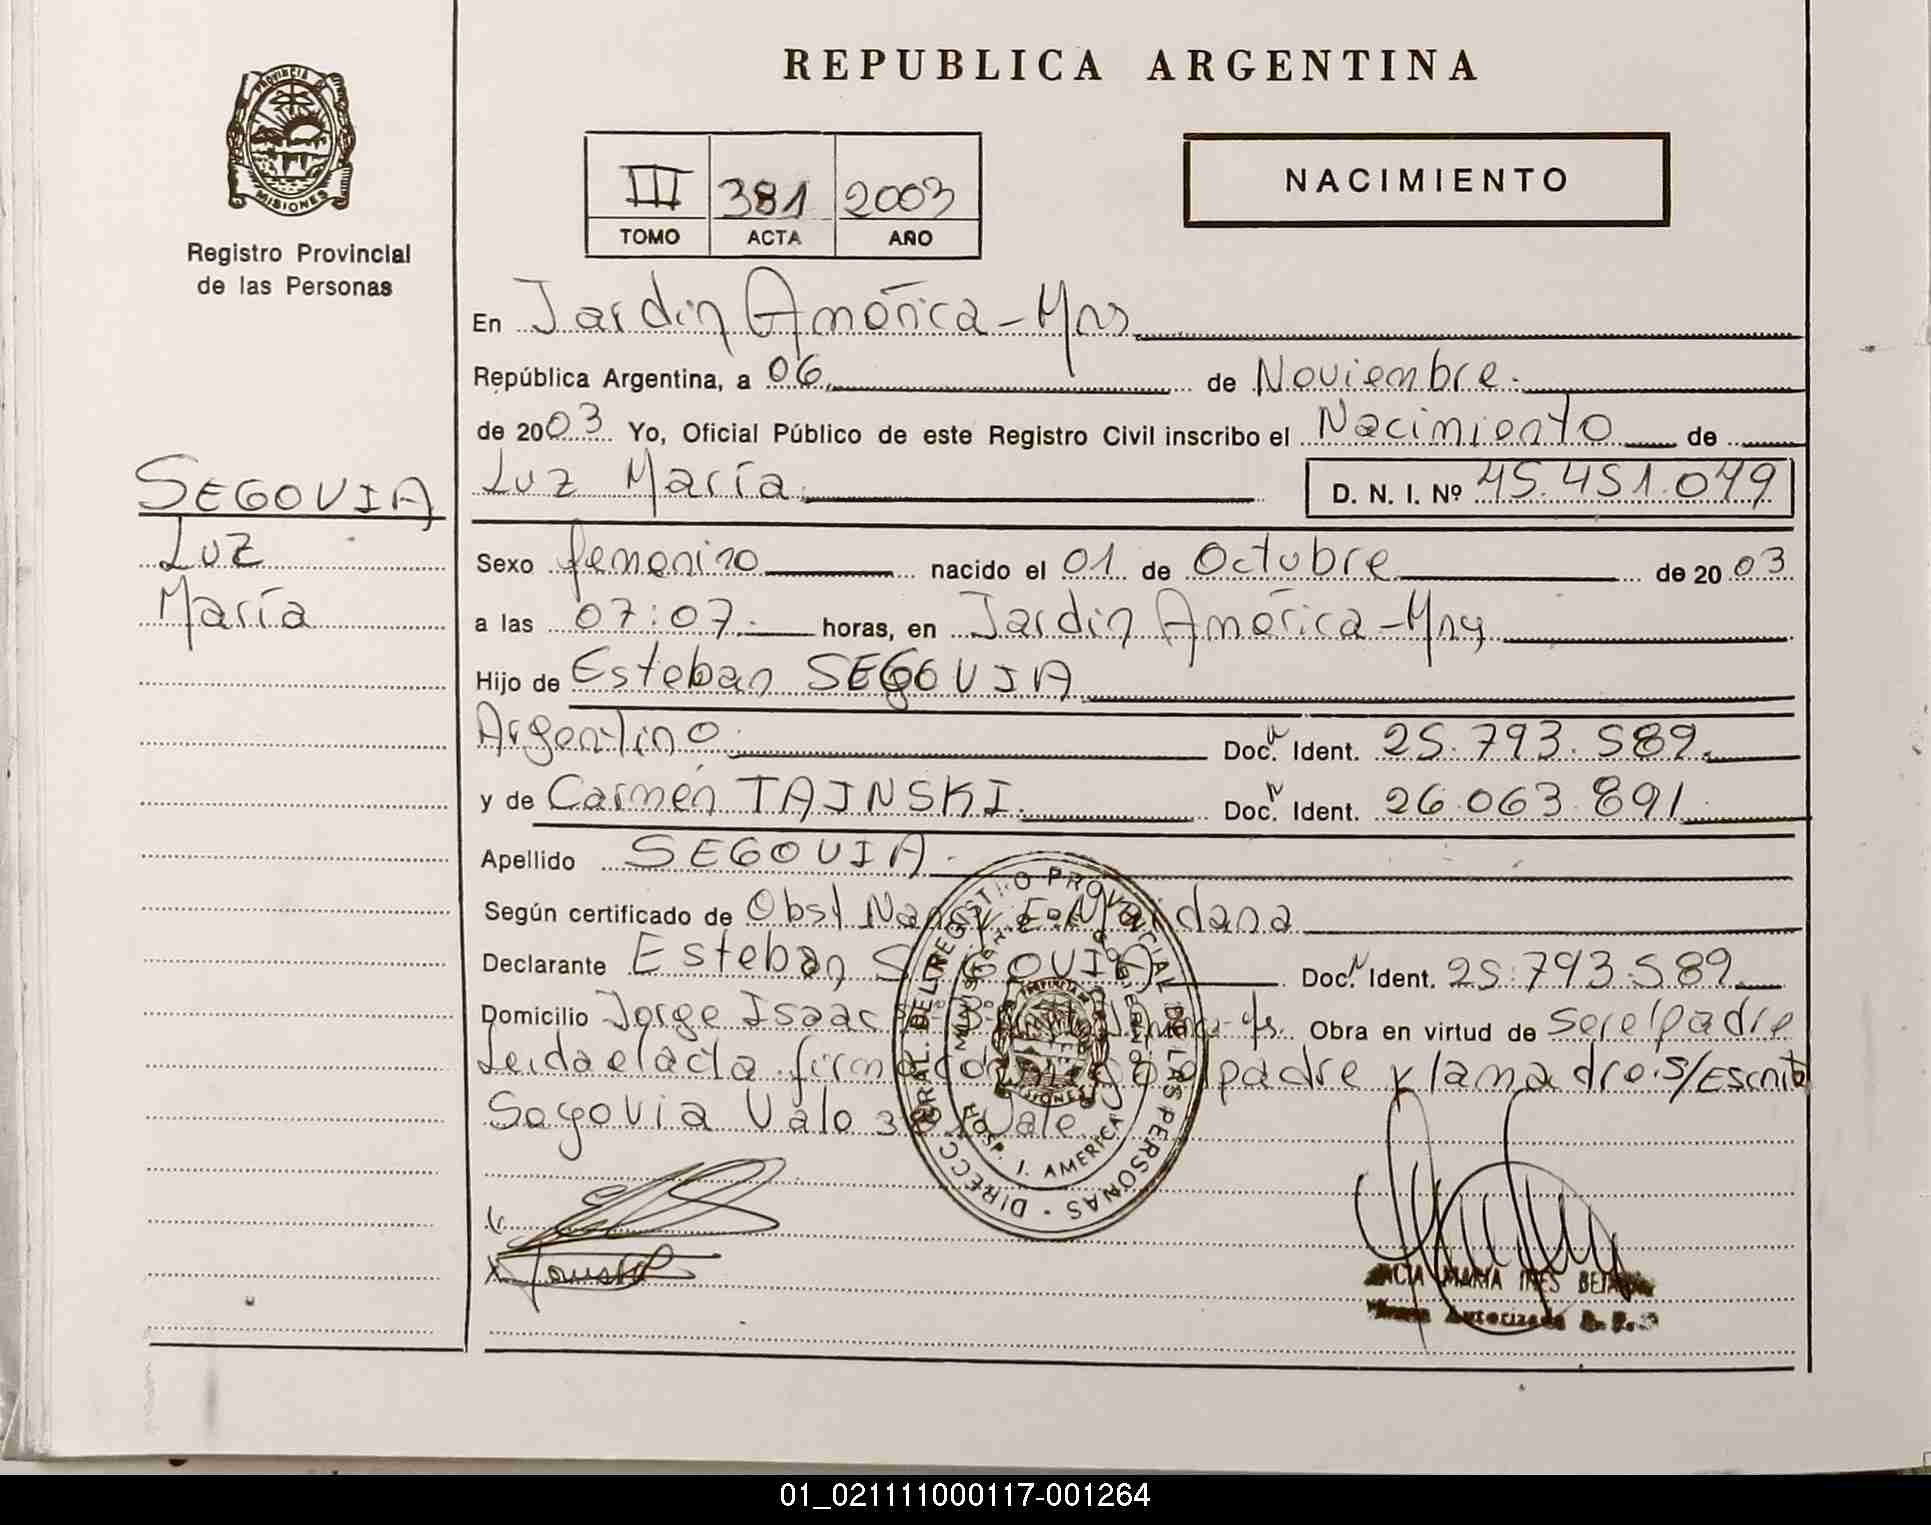 REPUBLICA ARGENTINA
PROVINCIA DE
MISIONES
Registro Provincial
de las Personas
III 381 2003
TOMO ACTA AÑO
NACIMIENTO
En Jardin América - Mns
República Argentina, a 06 de Noviembre.
de 2003 Yo, Oficial Público de este Registro Civil inscribo el Nacimiento de
Luz María D. N. I. Nº 45.451.079
SEGOVIA
Luz
María
Sexo femenino nacido el 01 de Octubre de 2003
a las 07:07. horas, en Jardin América - Mns
Hijo de Esteban SEGOVIA
Argentino. Doc. Ident. 25.793.589.
y de Carmen TAJNSKI. Doc. Ident. 26.063.891
Apellido SEGOVIA.
Según certificado de Obst
Declarante Esteban SEGOVIA Doc. Ident. 25.793.589.
Domicilio Jorge Isaac Obra en virtud de ser el padre
Leida el acta firma padre y la madre. S/Escrito
Segovia Vale Vale
DIRECC. GRAL. DEL REGISTRO PROVINCIAL DE LAS PERSONAS
MINISTERIO DE GOBIERNO
HOSP. J. AMERICA
MARIA INES
Autorizada
01_021111000117-001264